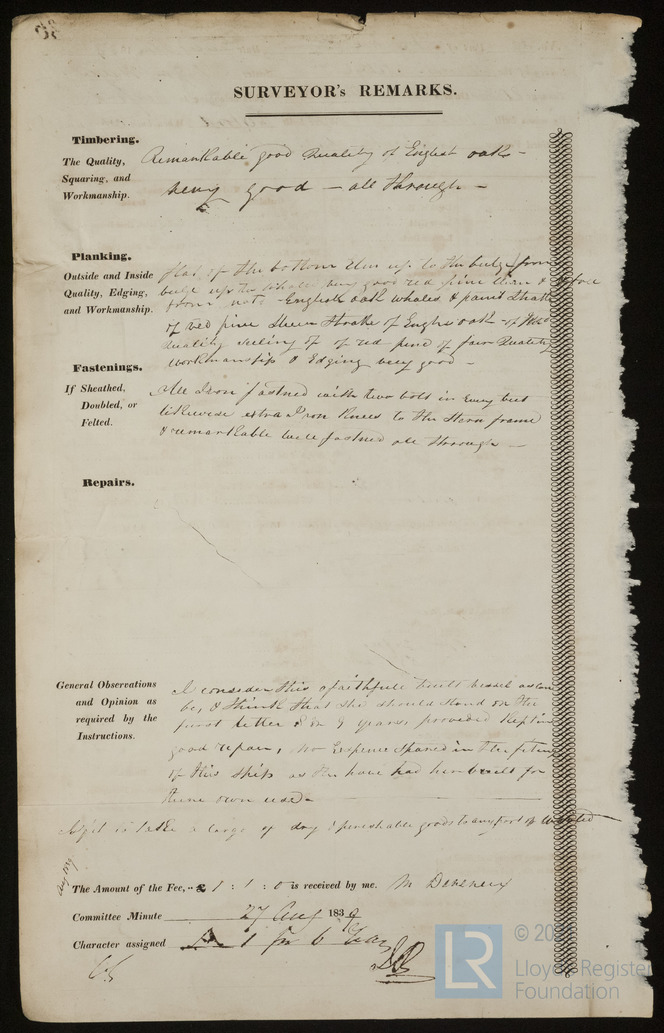 SURVEYOR's REMARKS.
Timbering.
The Quality, Squaring, and Workmanship.
Remarkable good Quality of English oak -
good - all through -
Planking.
Outside and Inside Quality, Edging, and Workmanship.
flat of the bottom Elm up to the bulge from
bulge up to the whales very good red pine
English oak whales & paint Strakes
of red pine Sheer Strakes of English oak - of good
Quality Ceiling of red pine of fair Quality
Workmanship & Edging very good -
Fastenings.
If Sheathed, Doubled, or Felted.
All Iron fastned with two bolts in Every but
likewise extra Iron Knees to the Stern frame
& remarkable well fastned all through -
Repairs.
General Observations and Opinion as required by the Instructions.
I consider this a faithfull built vessel as can
be, & I think that she should stand on the
first letter 9 years, provided kept in
good repair, no Expence Spared in the fiting
of this Ship as the have had her built for
there own use -
to take a cargo of dry & perishable goods to any part of
The Amount of the Fee, £ 1 : 1 : 0 is received by me.
Committee Minute 27 Aug 1839
Character assigned A 1 for 6 Years
LR
© 20
Lloyd's Register
Foundation